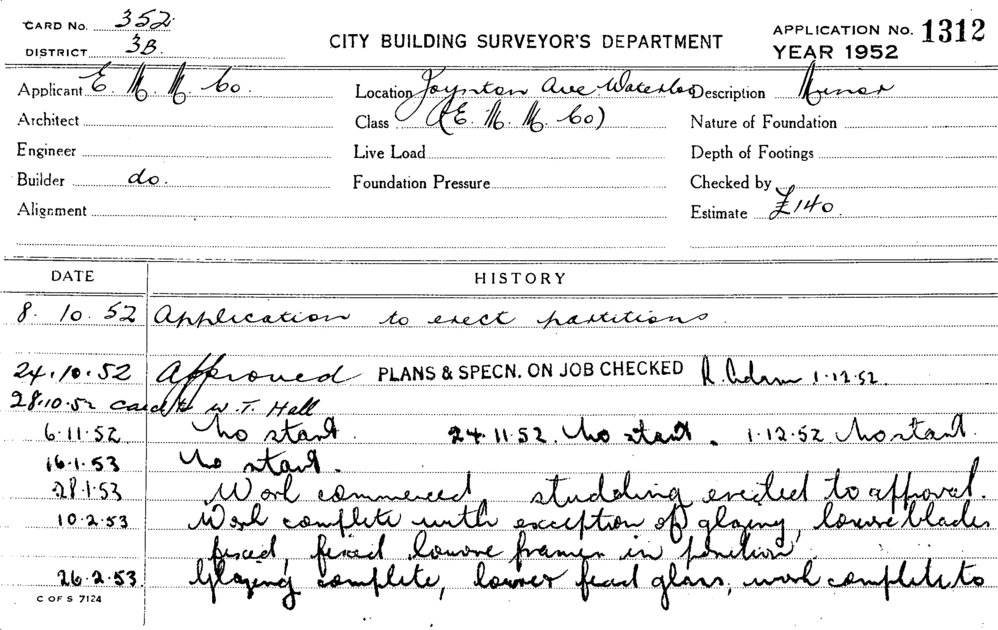 CARD No. 352.
DISTRICT 3B.
CITY BUILDING SURVEYOR'S DEPARTMENT
APPLICATION No. 1312
YEAR 1952
Applicant E. M. M. Co.
Location Joynton Ave. Waterloo
Description Minor
Architect
Class (E. M. M. Co)
Nature of Foundation
Engineer
Live Load
Depth of Footings
Builder do.
Foundation Pressure
Checked by
Alignment
Estimate £140.
DATE HISTORY
8. 10. 52 Application to erect partitions.
24.10.52 Approved PLANS & SPECN. ON JOB CHECKED 1.12.52.
28.10.52 Card to W. T. Hall
6.11.52. No start. 24.11.52. No start. 1.12.52 No start.
16.1.53 No start.
28.1.53 Work commenced, studding erected to approval.
10.2.53 Work complete with exception of glazing, louvre blades
fixed, fixed louvre frames in position.
26.2.53. Glazing complete, glass, work complete to
C OF S 7124